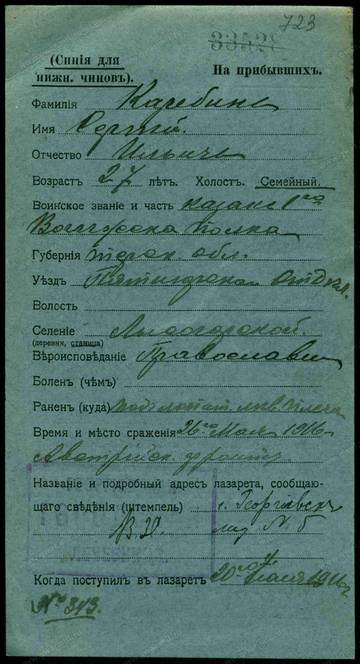 723
33528
(Синія для
нижн. чиновъ).
На прибывшихъ.
Фамилія
Имя Сергѣй.
Отчество Ильичъ
Возрастъ 27 лѣтъ. Холост. Семейный.
Воинское званіе и часть казакъ 1го
Волгскаго полка
Губернія Терск. обл.
Уѣздъ Пятигорскаго Отдѣл.
Волость
Селеніе Лысогорской.
(деревня, станица)
Вѣроисповѣданіе Православн
Боленъ (чѣмъ)
Раненъ (куда) лѣв. плеча
Время и мѣсто сраженія 26го Мая 1916
Австрійск. фронтъ
Названіе и подробный адресъ лазарета, сообщаю-
щаго свѣдѣнія (штемпель) г. Георгіевскъ
В. З. лаз. № 6
Когда поступилъ въ лазаретъ 20го 1916г.
№ 343.